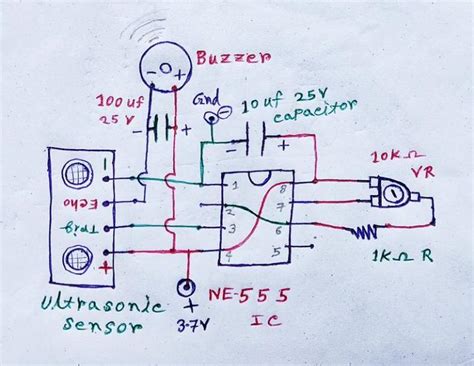 Buzzer
- +
100 uf
25 V
- +
Gnd
-
10 uf 25V
capacitor
- +
10K Ω
VR
1
2
3
4
8
7
6
5
1KΩ R
-
Echo
Trig
+
Ultrasonic
Sensor
+
3.7V
NE-555
IC